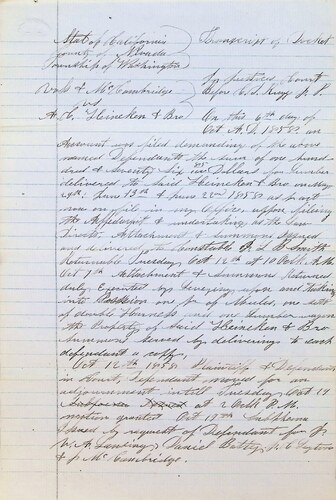 State of California Transcript of Docket
County of Nevada
Township of Washington
In Justices Court
Before C. S. J. P.
Vose & McCambridge
vs
A. C. Heineken & Bro
On this 6th day of
Oct A.D. 1858 an
Account was filed demanding of the above
named Defendants the sum of one hun-
dred & Seventy Six Dollars for Lumber
delivered to said Heineken & Bro on May
June 15th & June 22nd 1858 as part
on file in my Office, upon filing
the Affidavit & undertaking as the Law
Directs Attachment & Summons Issued
and delivered to Constable Smith
Returnable Tuesday, Oct 12th at 10 Oclk A.M.
Oct 7th Attachment & Summons Returned
duly Executed by levying upon and taking
into Possession one pr of Mules, one set
of double Harness and one Lumber wagon
the Property of said Heineken & Bro
Summons served by delivering to each
defendant a copy.
Oct 12th 1858 Plaintiff & Defendants
in Court, Defendant moved for an
adjournment untill Tuesday, Oct 19
at 2 Oclk P.M.
motion granted Oct 19th Subpoena
Issued by request of Defendant for
W. A. Lansing, Daniel Batty,
& J. McCambridge.